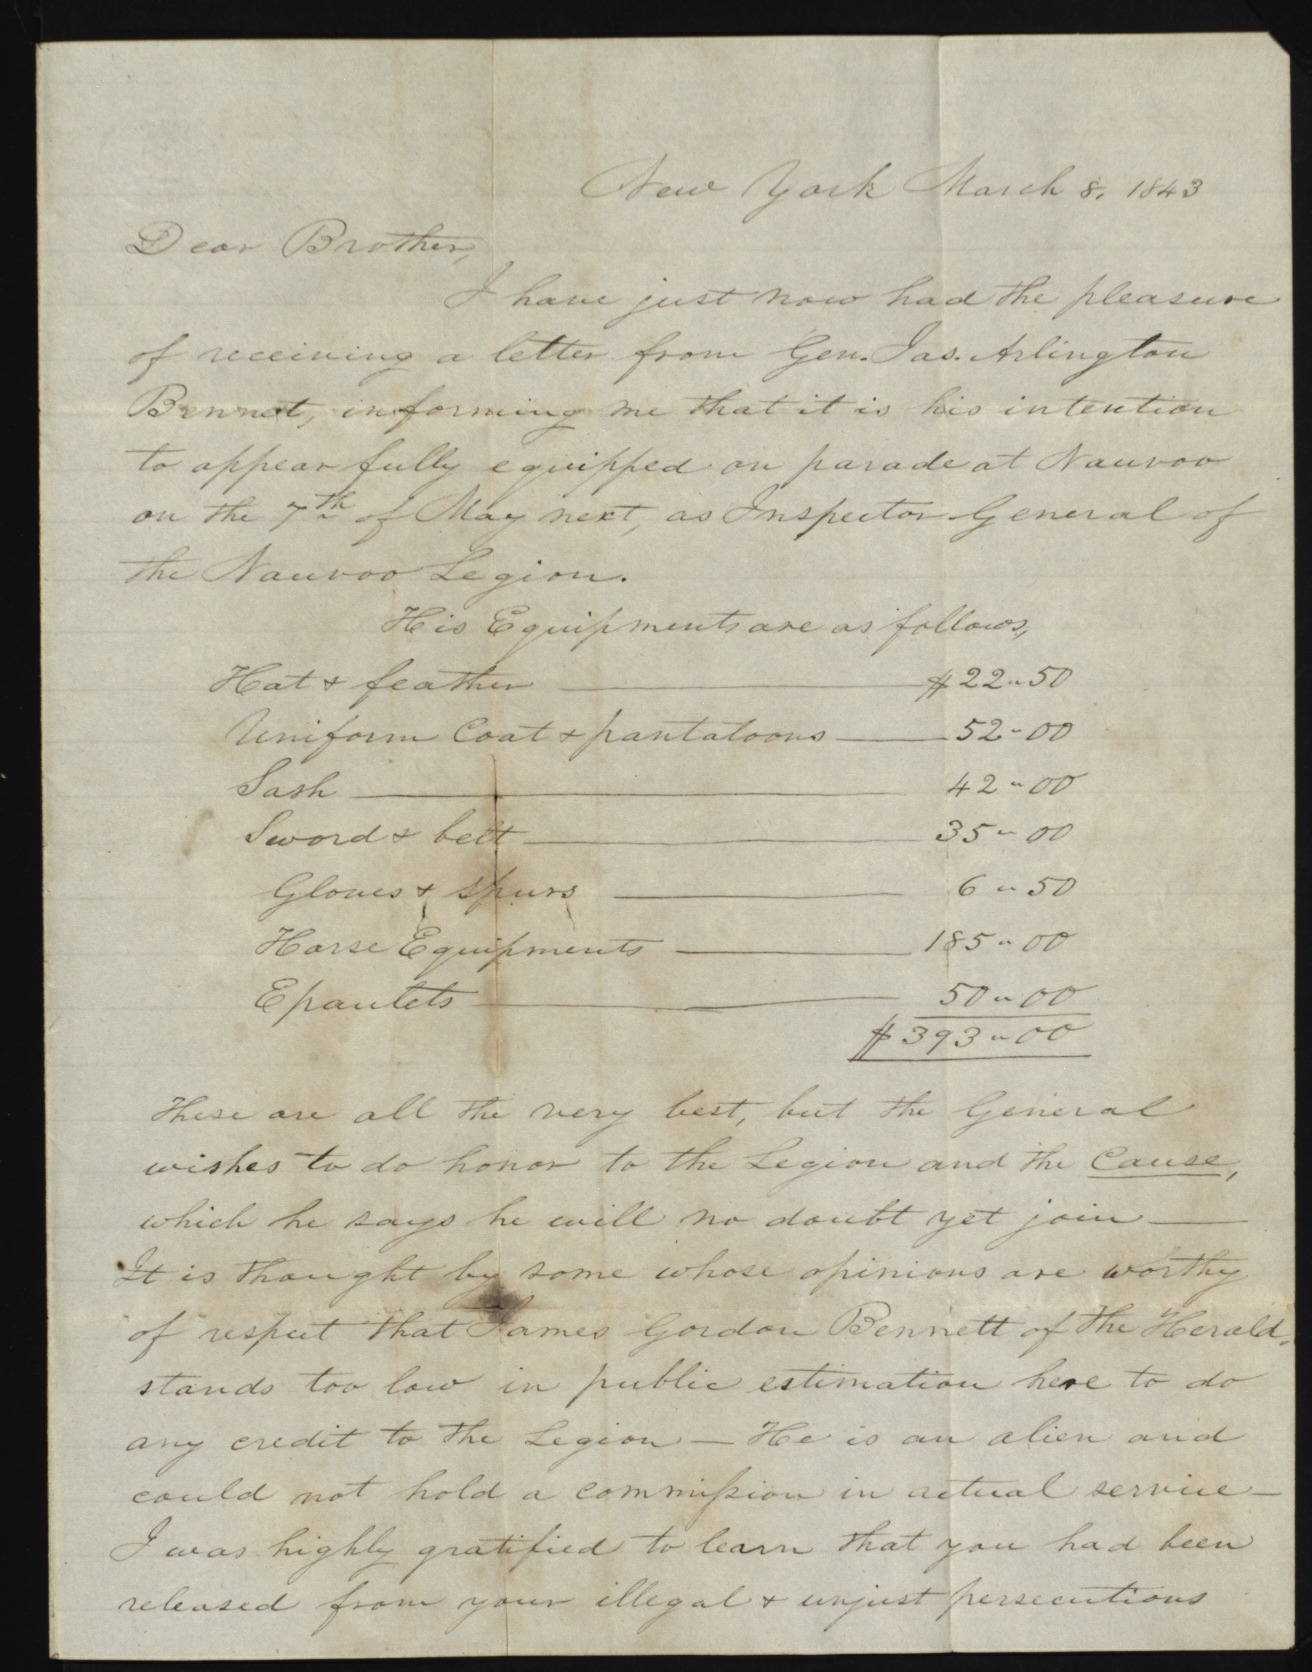 New York March 8, 1843
Dear Brother,
I have just now had the pleasure
of receiving a letter from Gen. Jas. Arlington
Bennet, informing me that it is his intention
to appear fully equipped on parade at Nauvoo
on the 7th of May next, as Inspector General of
the Nauvoo Legion.
His Equipments are as follows,
Hat & feather — $22"50
Uniform Coat & pantaloons — 52"00
Sash — 42"00
Sword & belt — 35"00
Gloves & spurs — 6"50
Horse Equipments — 185"00
Epauletts — 50"00
$393"00
These are all the very best, but the General
wishes to do honor to the Legion and the Cause,
which he says he will no doubt yet join —
It is thought by some whose opinions are worthy
of respect that James Gordon Bennett of the Herald,
stands too low in public estimation here to do
any credit to the Legion — He is an alien and
could not hold a commission in actual service —
I was highly gratified to learn that you had been
released from your illegal & unjust persecutions